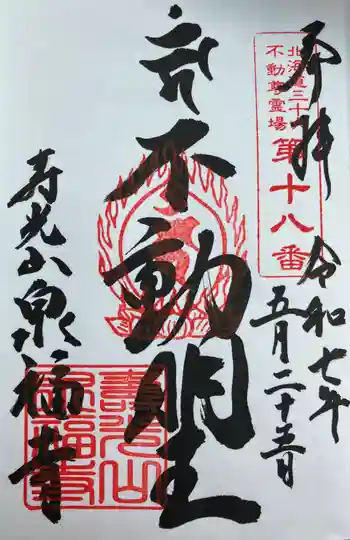 奉拝
北海道三十
不動尊霊場
第十八番
令和七年
五月二十五日
不動明王
寿光山泉福寺
寿光山
泉福寺